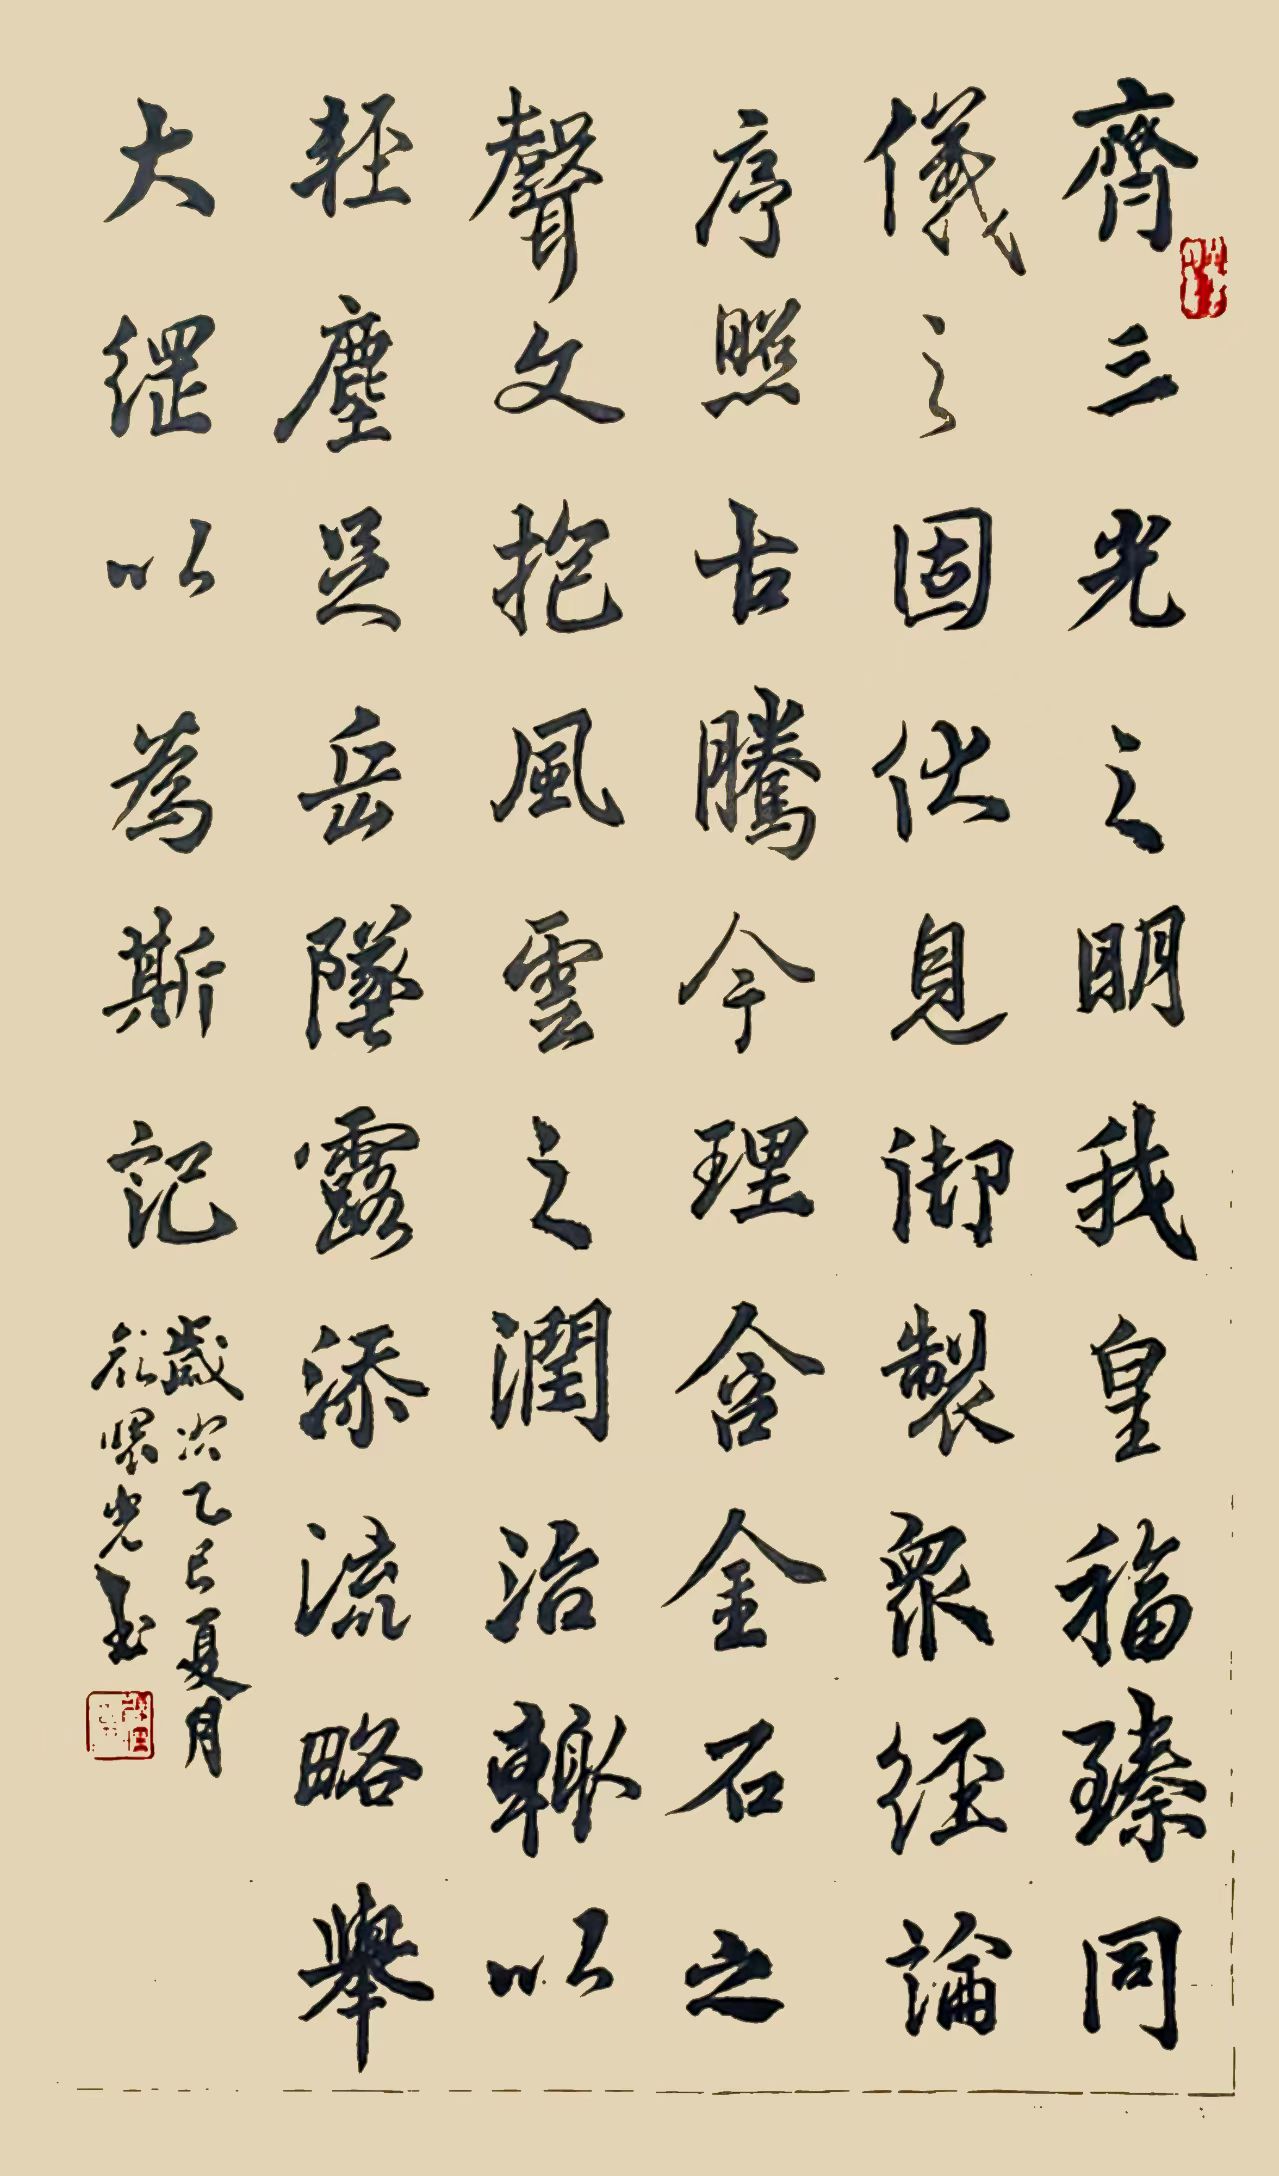 齊三光之明我皇福臻同
儀之固伏見御製衆經論
序照古騰今理含金石之
聲文抱風雲之潤治輙以
輕塵足岳墜露添流略舉
大綱以為斯記
歲次乙巳夏月
光書